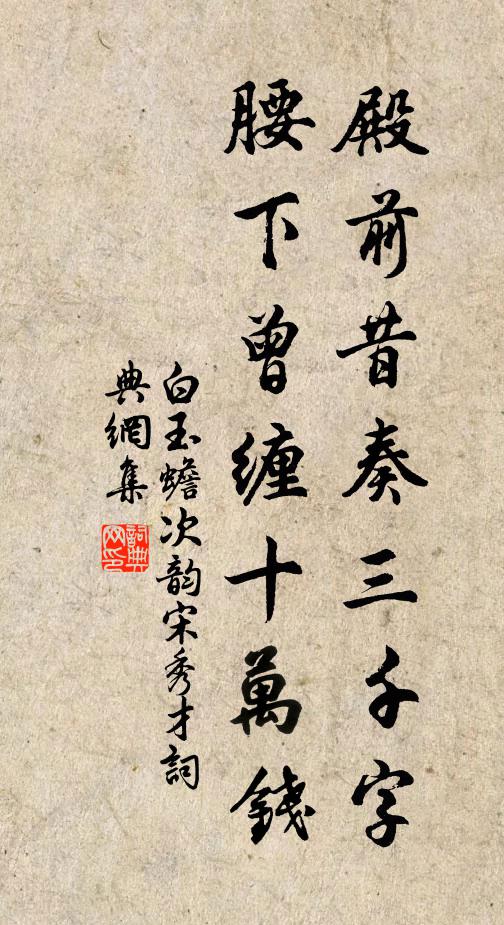 殿前昔奏三千字
腰下曾纏十萬錢
白玉蟾次韵宋秀才詞
典網集
詞典
网印